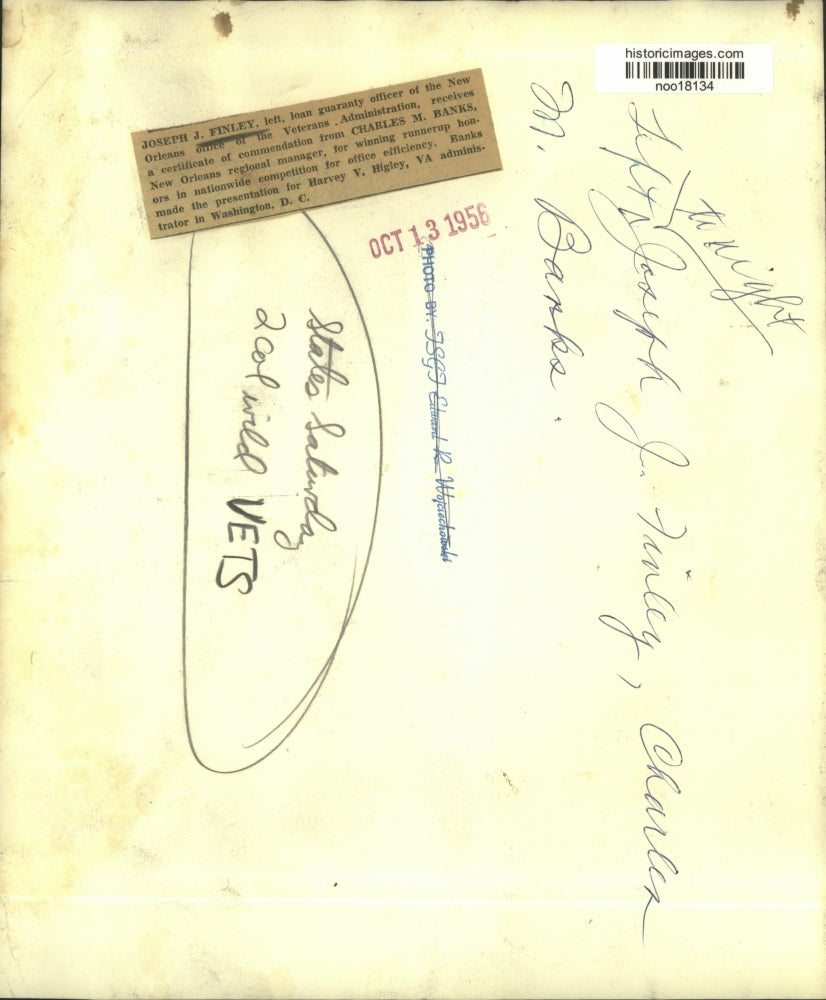 historicimages.com
noo18134
JOSEPH J. FINLEY, left, loan guaranty officer of the New
Orleans office of the Veterans Administration, receives
a certificate of commendation from CHARLES M. BANKS,
New Orleans regional manager, for winning runnerup hon-
ors in nationwide competition for office efficiency. Banks
made the presentation for Harvey V. Higley, VA adminis-
trator in Washington, D. C.
OCT 13 1956
PHOTO BY: TSGT Edward R. Wojciechowski
to right
Left, Joseph J. Finley, Charles
M. Banks.
States Saturday
2 col wild VETS